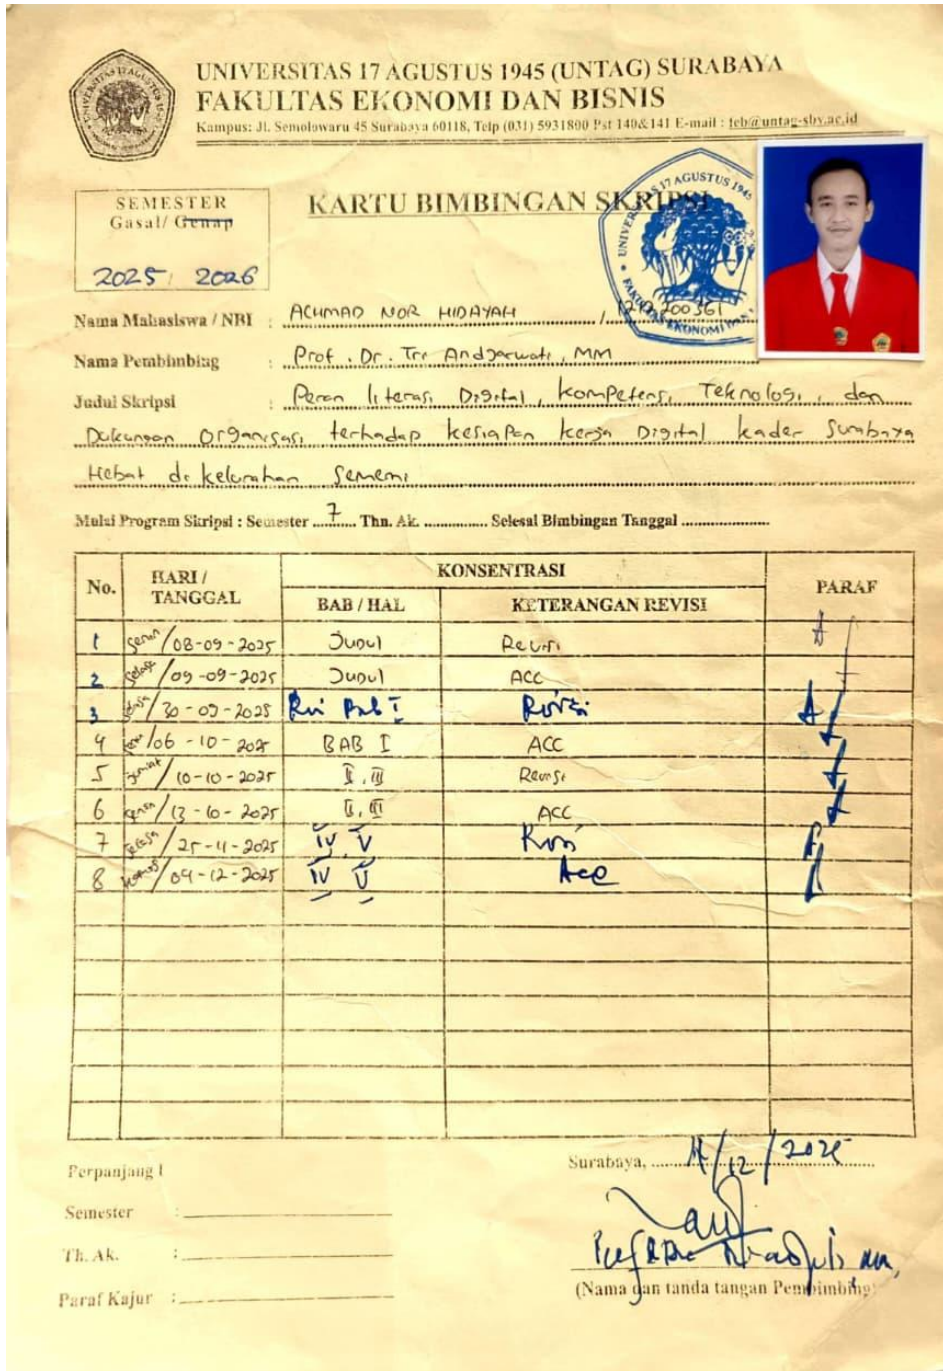 UNIVERSITAS 17 AGUSTUS 1945 (UNTAG) SURABAYA
FAKULTAS EKONOMI DAN BISNIS
Kampus: Jl. Semolowaru 45 Surabaya 60118, Telp (031) 5931800 Pst 140&141 E-mail : feb@untag-sby.ac.id
SEMESTER
Gasal/ Genap
2025/ 2026
KARTU BIMBINGAN SKRIPSI
Nama Mahasiswa / NBI : ACHMAD NOR HIDAYAH ,
Nama Pembimbing : Prof. Dr. Tri Andjarwati, MM
Judul Skripsi : Peran literasi Digital, Kompetensi Teknologi, dan
Dukungan Organisasi terhadap kesiapan kerja Digital kader Surabaya
Hebat di kelurahan Sememi
Mulai Program Skripsi : Semester 7 Thn. Ak. Selesai Bimbingan Tanggal
No. HARI / TANGGAL KONSENTRASI PARAF
BAB / HAL KETERANGAN REVISI
1 Senin/08-09-2025 Judul Revisi
2 Selasa/09-09-2025 Judul ACC
3 Selasa/30-09-2025 Bab I Revisi
4 Senin/06-10-2025 BAB I ACC
5 Jumat/10-10-2025 II, III Revisi
6 Senin/13-10-2025 II, III ACC
7 Selasa/25-11-2025 IV V
8 Kamis/04-12-2025 IV V Acc
Surabaya, /12/2025
Perpanjang I
Semester :
Th. Ak. :
Paraf Kajur :
(Nama dan tanda tangan Pembimbing)